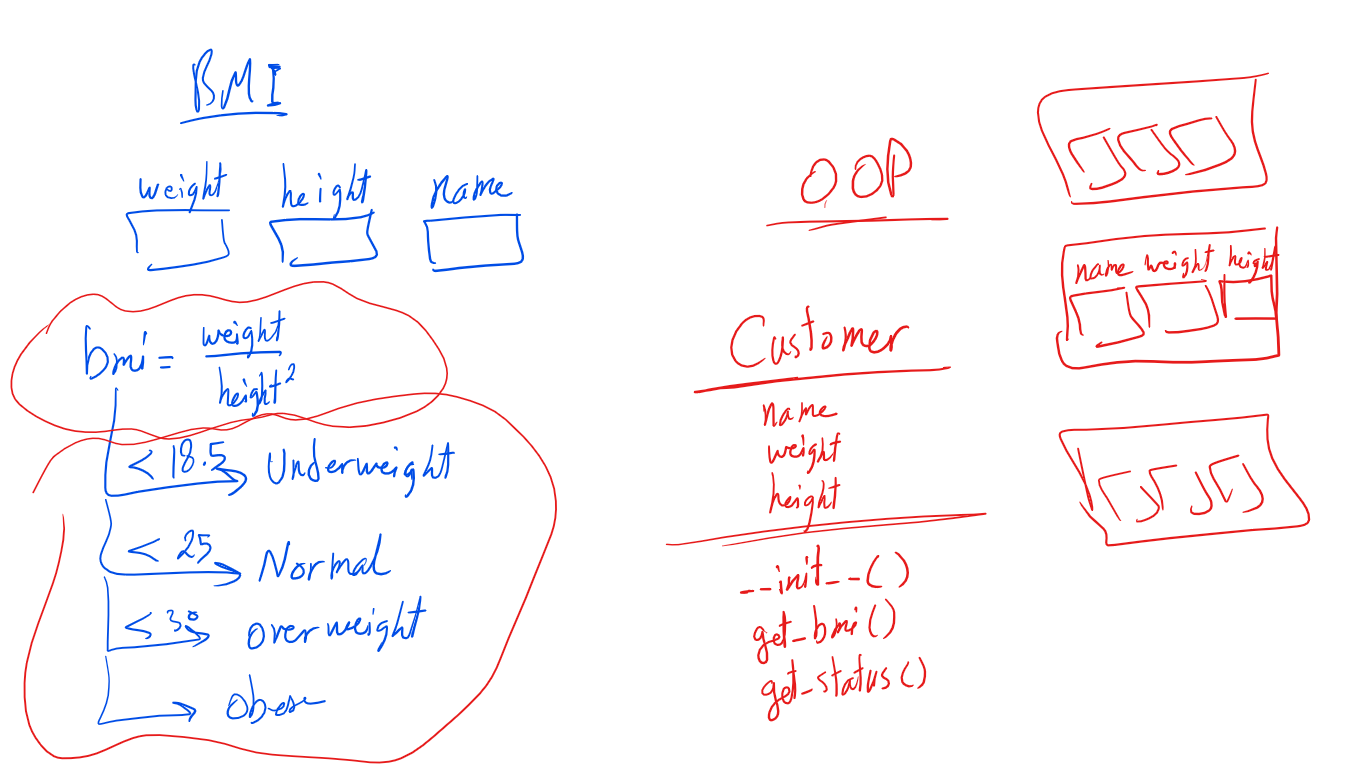 BMI
weight height name
bmi = weight / height²
< 18.5 Underweight
< 25 Normal
≤ 30 overweight
obese
OOP
Customer
name
weight
height
__init__()
get_bmi()
get_status()
name weight height